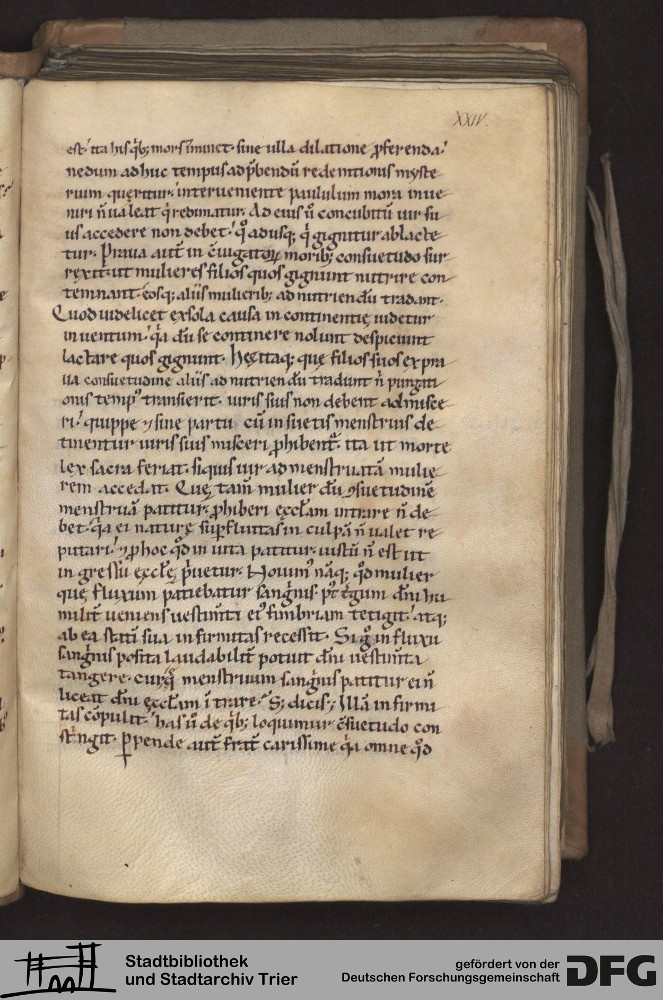 XXIV.
est. ita his qb; mors iminet. sine ulla dilatione p̄ferenda.
nedum adhuc tempus ad p̄bendū redemtionis myste
rium queritur. interueniente paululum mora inue
niri ñ ualeat q̇ redimatur. Ad eius ū concubitū uir su
us accedere non debet. q̊ adusq; q̇ gignitur ablacte
tur. Praua aut̄ in c̄iugatoꝝ morib; consuetudo sur
rexit. ut mulieres filios quos gignunt nutrire con
temnant. eosq; aliis mulierib; ad nutriendū tradant.
Quod uidelicet ex sola causa incontinentię uidetur
inuentum. q̇a dū se continere nolunt despiciunt
lactare quos gignunt. Hę itaq; quę filios suos ex pra
ua consuetudine aliis ad nutriendū tradunt ñ purgati
onis temp᾽ transierit. uiris suis non debent admisce
ri. quippe ⁊ sine partu cū insuetis menstruis de
tinentur uiris suis misceri ꝓhibent᾽. ita ut morte
lex sacra feriat. siquis uir ad menstruatā mulie
rem accedat. Quę tam̄ mulier dū ↄsuetudinē
menstruā patitur. ꝓhiberi eccl̄am intrare ñ de
bet. q̇a ei naturę suꝑfluitas in culpā ñ ualet re
putari. ⁊ ꝑ hoc q̊d inuita patitur. iustū ñ est ut
ingressu eccl̄ę p̄uetur. Nouim᾽ nāq; q̊d mulier
quę fluxum patiebatur sang̍nis. p᾽t t̄gum dn̄i hu
milit̄ ueniens uestim̄ti ei᾽ fimbriam tetigit. atq;
ab ea statī sua infirmitas recessit. Si g̊ in fluxu
sang̍nis posita laudabilit̄ potuit dn̄i uestim̄ta
tangere. cur quę menstruum sang̍nis patitur ei ñ
liceat dn̄i eccl̄am ītrare. S; dicis; Illā infirmi
tas cōpulit. has ū de qb; loquimur c̄suetudo con
st̍ngit. Perpende aut̄ frat̄ carissime q̇a omne q̊d
Stadtbibliothek
und Stadtarchiv Trier
gefördert von der
Deutschen Forschungsgemeinschaft
DFG